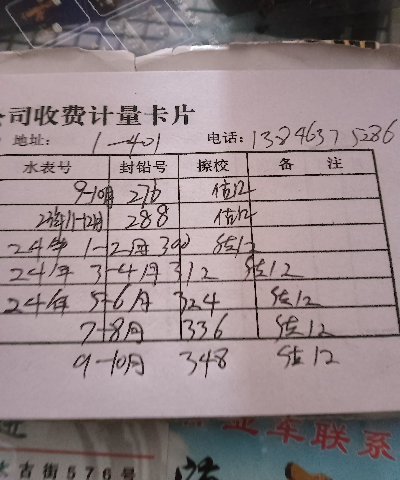 公司收费计量卡片
地址: 1-401 电话: 13846375286
水表号 封铅号 擦校 备 注
9-10月 276 估12
23年11-12月 288 估12
24年 1-2月 300 估12
24年 3-4月 312 估12
24年 5-6月 324 估12
7-8月 336 估12
9-10月 348 估12
业车联系
古街576号